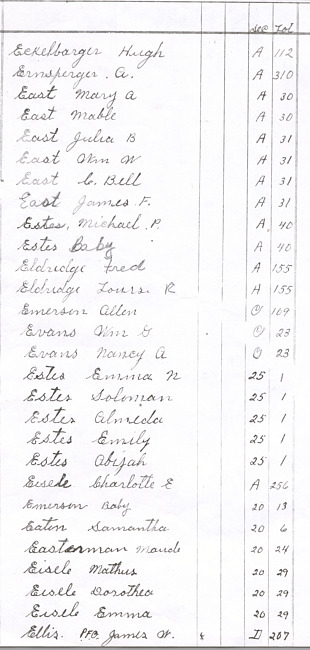 Sec Lot
Eckelbarger Hugh A 112
Ernsperger. A. A 310
East Mary A A 30
East Mable A 30
East Julia B A 31
East Wm W A 31
East C. Bell A 31
East James F. A 31
Estes, Michael P. A. 40
Estes Baby A 40
Eldridge Fred A 155
Eldridge Tours. R A 155
Emerson Allen O 109
Evans Wm G O 23
Evans Nancy A O 23
Estes Emma N 25 1
Estes Soloman 25 1
Estes Almeda 25 1
Estes Emily 25 1
Estes Abijah 25 1
Eisele Charlotte E A 256
Emerson Baby 20 13
Eaton Samantha 20 6
Easterman Maude 20 24
Eisele Mathus 20 29
Eisele Dorothea 20 29
Eisele Emma 20 29
Ellis. PFC James W. D 207